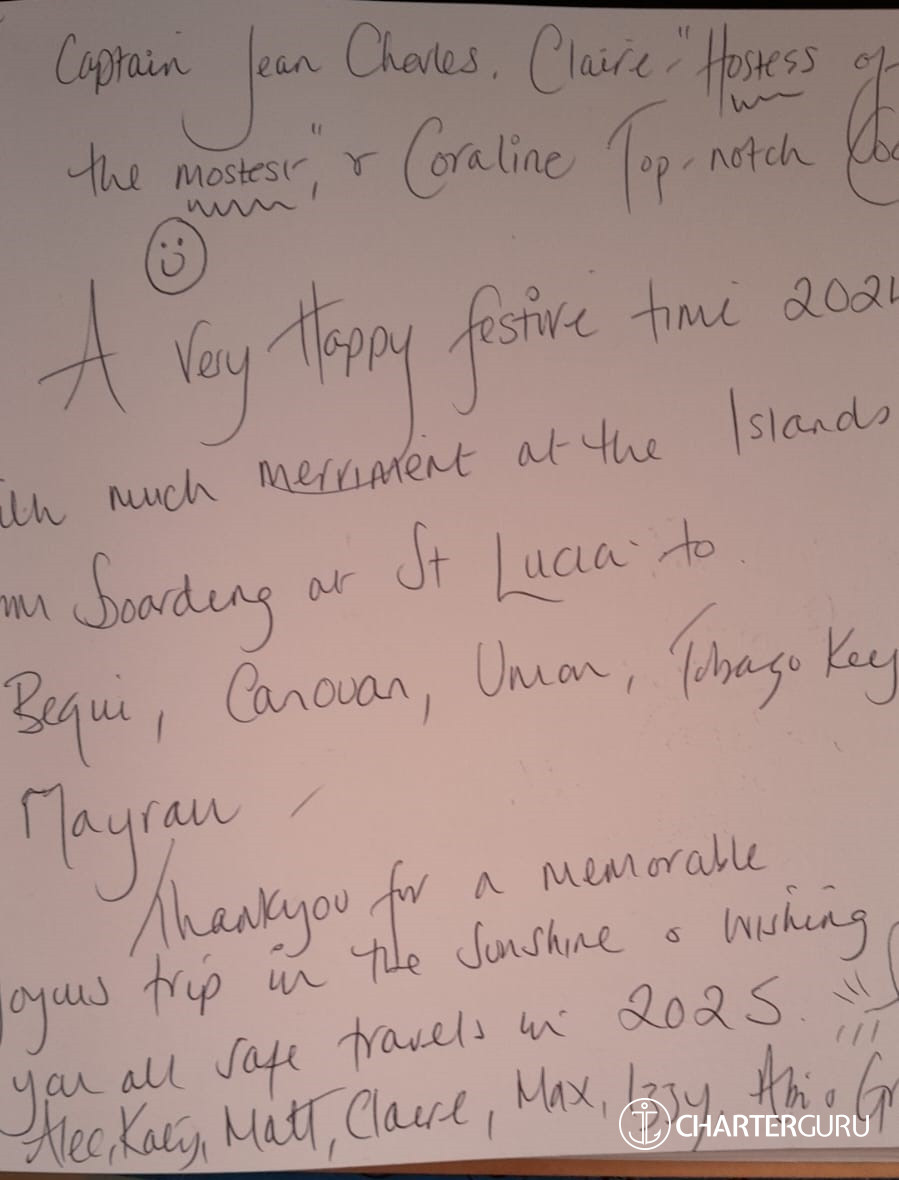 Captain Jean Charles, Claire "Hostess of
the mostest", & Coraline Top-notch
A Very Happy festive time 2024
with much merriment at the Islands
boarding at St Lucia to
Bequi, Canouan, Union, Tobago Key
Mayrau
Thankyou for a memorable
joyous trip in the Sunshine & wishing
you all safe travels in 2025.
Alec, Kaey, Matt, Claire, Max, Izzy, Abi &
CHARTERGURU